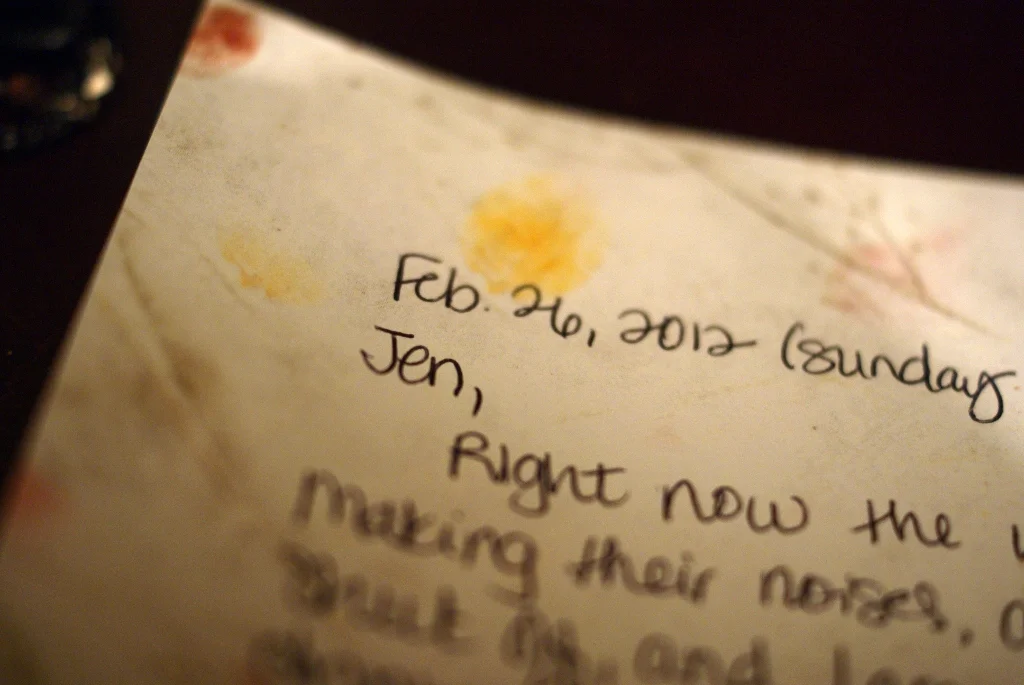 Feb. 26, 2012 (Sunday
Jen,
Right now the
making their noises,
and